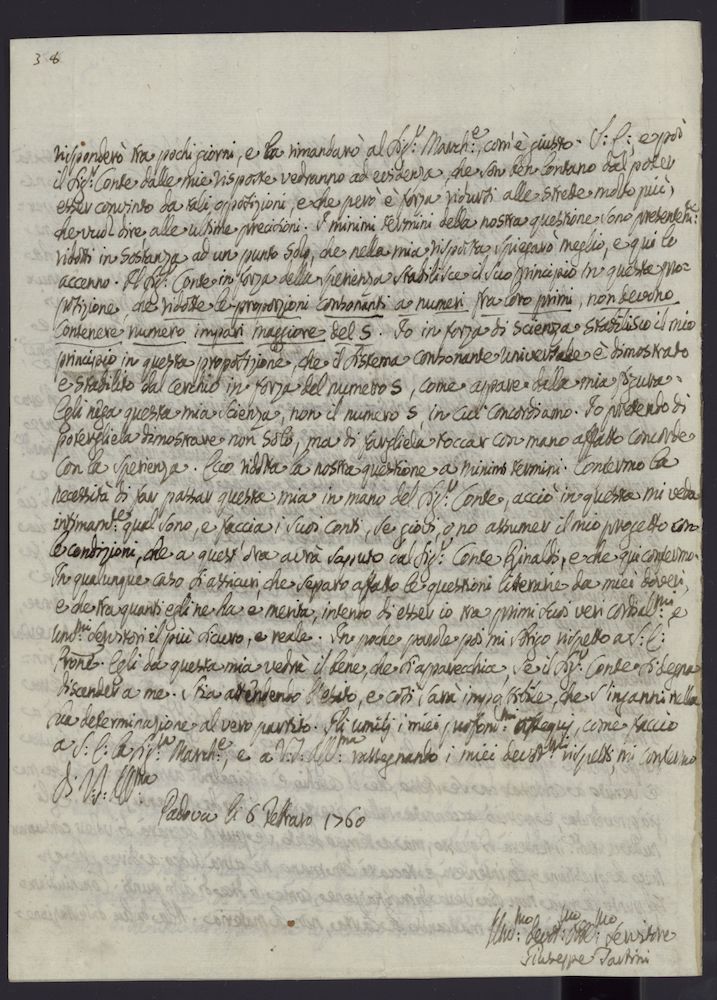 38
risponderò tra pochi giorni, e la rimandarò al Sig.r March.e, com'è giusto. S: E:, e poi
il Sig.r Conte dalle mie risposte vedranno ad evidenza, che son ben lontano dal poter
esser convinto da tali opposizioni, e che però è forza ridursi alle strette molto più,
che vuol dire alle ultime precisioni. I minimi termini della nostra questione sono presentem.te
ridotti in sostanza ad un punto solo, che nella mia risposta spiegarò meglio, e qui lo
accenno. Il Sig.r Conte in forza della sperienza stabilisce il suo principio in questa pro-
posizione, che ridotte le proporzioni consonanti a numeri fra loro primi, non devono
contenere numero impari maggiore del 5. Io in forza di scienza stabilisco il mio
principio in questa proposizione, che il sistema consonante universale è dimostrato
e stabilito dal cerchio in forza del numero 5, come appare dalla mia figura.
Egli nega questa mia scienza, non il numero 5, in cui concordiamo. Io pretendo di
potergliela dimostrare non solo, ma di fargliela toccar con mano affatto concorde
con la sperienza. Ecco ridotta la nostra questione a minimi termini. Confermo la
necessità di far passar questa mia in mano del Sig.r Conte, acciò in questa mi veda
intimam.te qual sono, e faccia i suoi conti, se giovi, o no assumer il mio progetto con
le condizioni, che a quest'ora avrà saputo dal Sig.r Conte Rinaldi, e che qui confermo.
In qualunque caso si assicuri, che separo affatto le questioni letterarie da miei doveri,
e che tra quanti egli ne ha e merita, intendo di esser io tra primi suoi veri cordial.mi e
um.mi servitori il più sicuro, e reale. In poche parole poi mi sbrigo rispetto a S: E:
Pron.e Egli da questa mia vedrà il bene, che si apparecchia, se il Sig.r Conte si degna
discender a me. Stia attendendo l'esito, e così sarà impossibile, che s'inganni nella
sua determinazione al vero partito. Gli umilj i miei profond.mi ossequj, come faccio
a S: E: la Sig.ra March.e e a V: S: Ill.ma rassegnando i miei devot.mi rispetti, mi confermo
Di V: S: Ill.ma
Padova li 6 Febraro 1760
Um.mo Devot.mo Obl.mo Servitore
Giuseppe Tartini